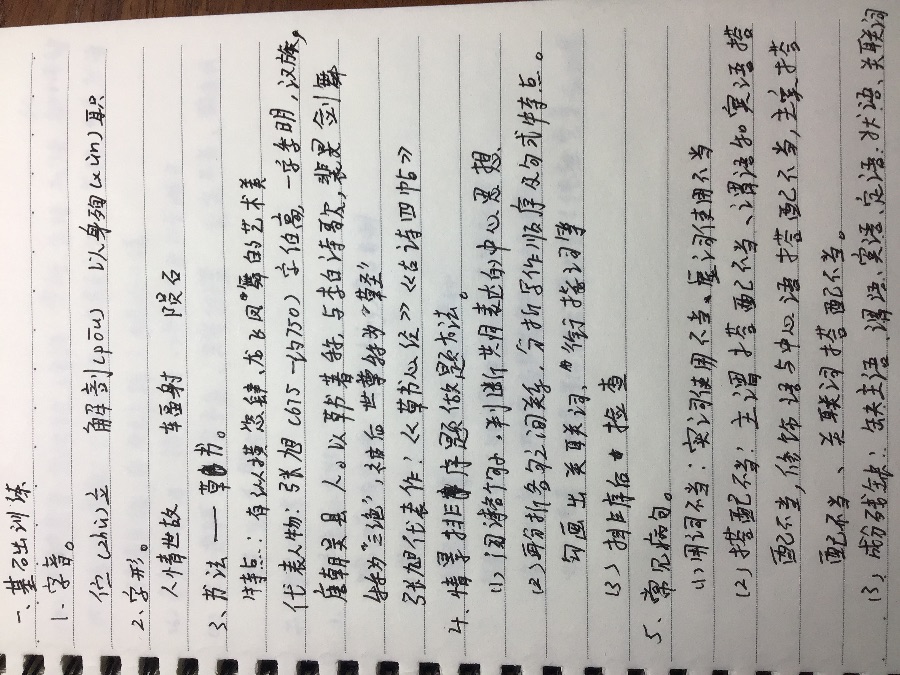 一、基础训练
1、字音。
伫(zhù)立 解剖(pōu) 以身殉(xùn)职
2、字形。
人情世故 辐射 陨石
3、书法——草书。
特点:有纵横悠肆、龙飞凤舞的艺术美
代表人物:张旭(675—约750)字伯高,一字季明,汉族,
唐朝吴县人。以草书著称,与李白诗歌,裴旻剑舞
称为“三绝”,被后世尊称为“草圣”
张旭代表作:《草书心经》《古诗四帖》
4、情景排序题做题方法。
(1)阅读各句,判断共同表达的中心思想、
(2)再分析各句之间关系,分析写作顺序及句式特点。
勾画出关联词,“衔接词等
(3)排序后检查
5、常见病句。
(1)用词不当:实词使用不当、虚词使用不当
(2)搭配不当:主谓搭配不当、谓语和宾语搭
配不当,修饰语与中心语搭配不当,主宾搭
配不当、关联词搭配不当。
(3)成分残缺:缺主语、谓语、宾语、定语、状语、关联词